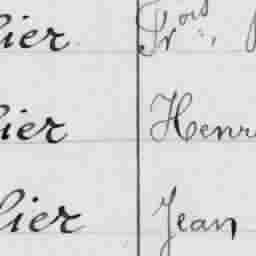 lier Fr ois
lier Henr
lier Jean